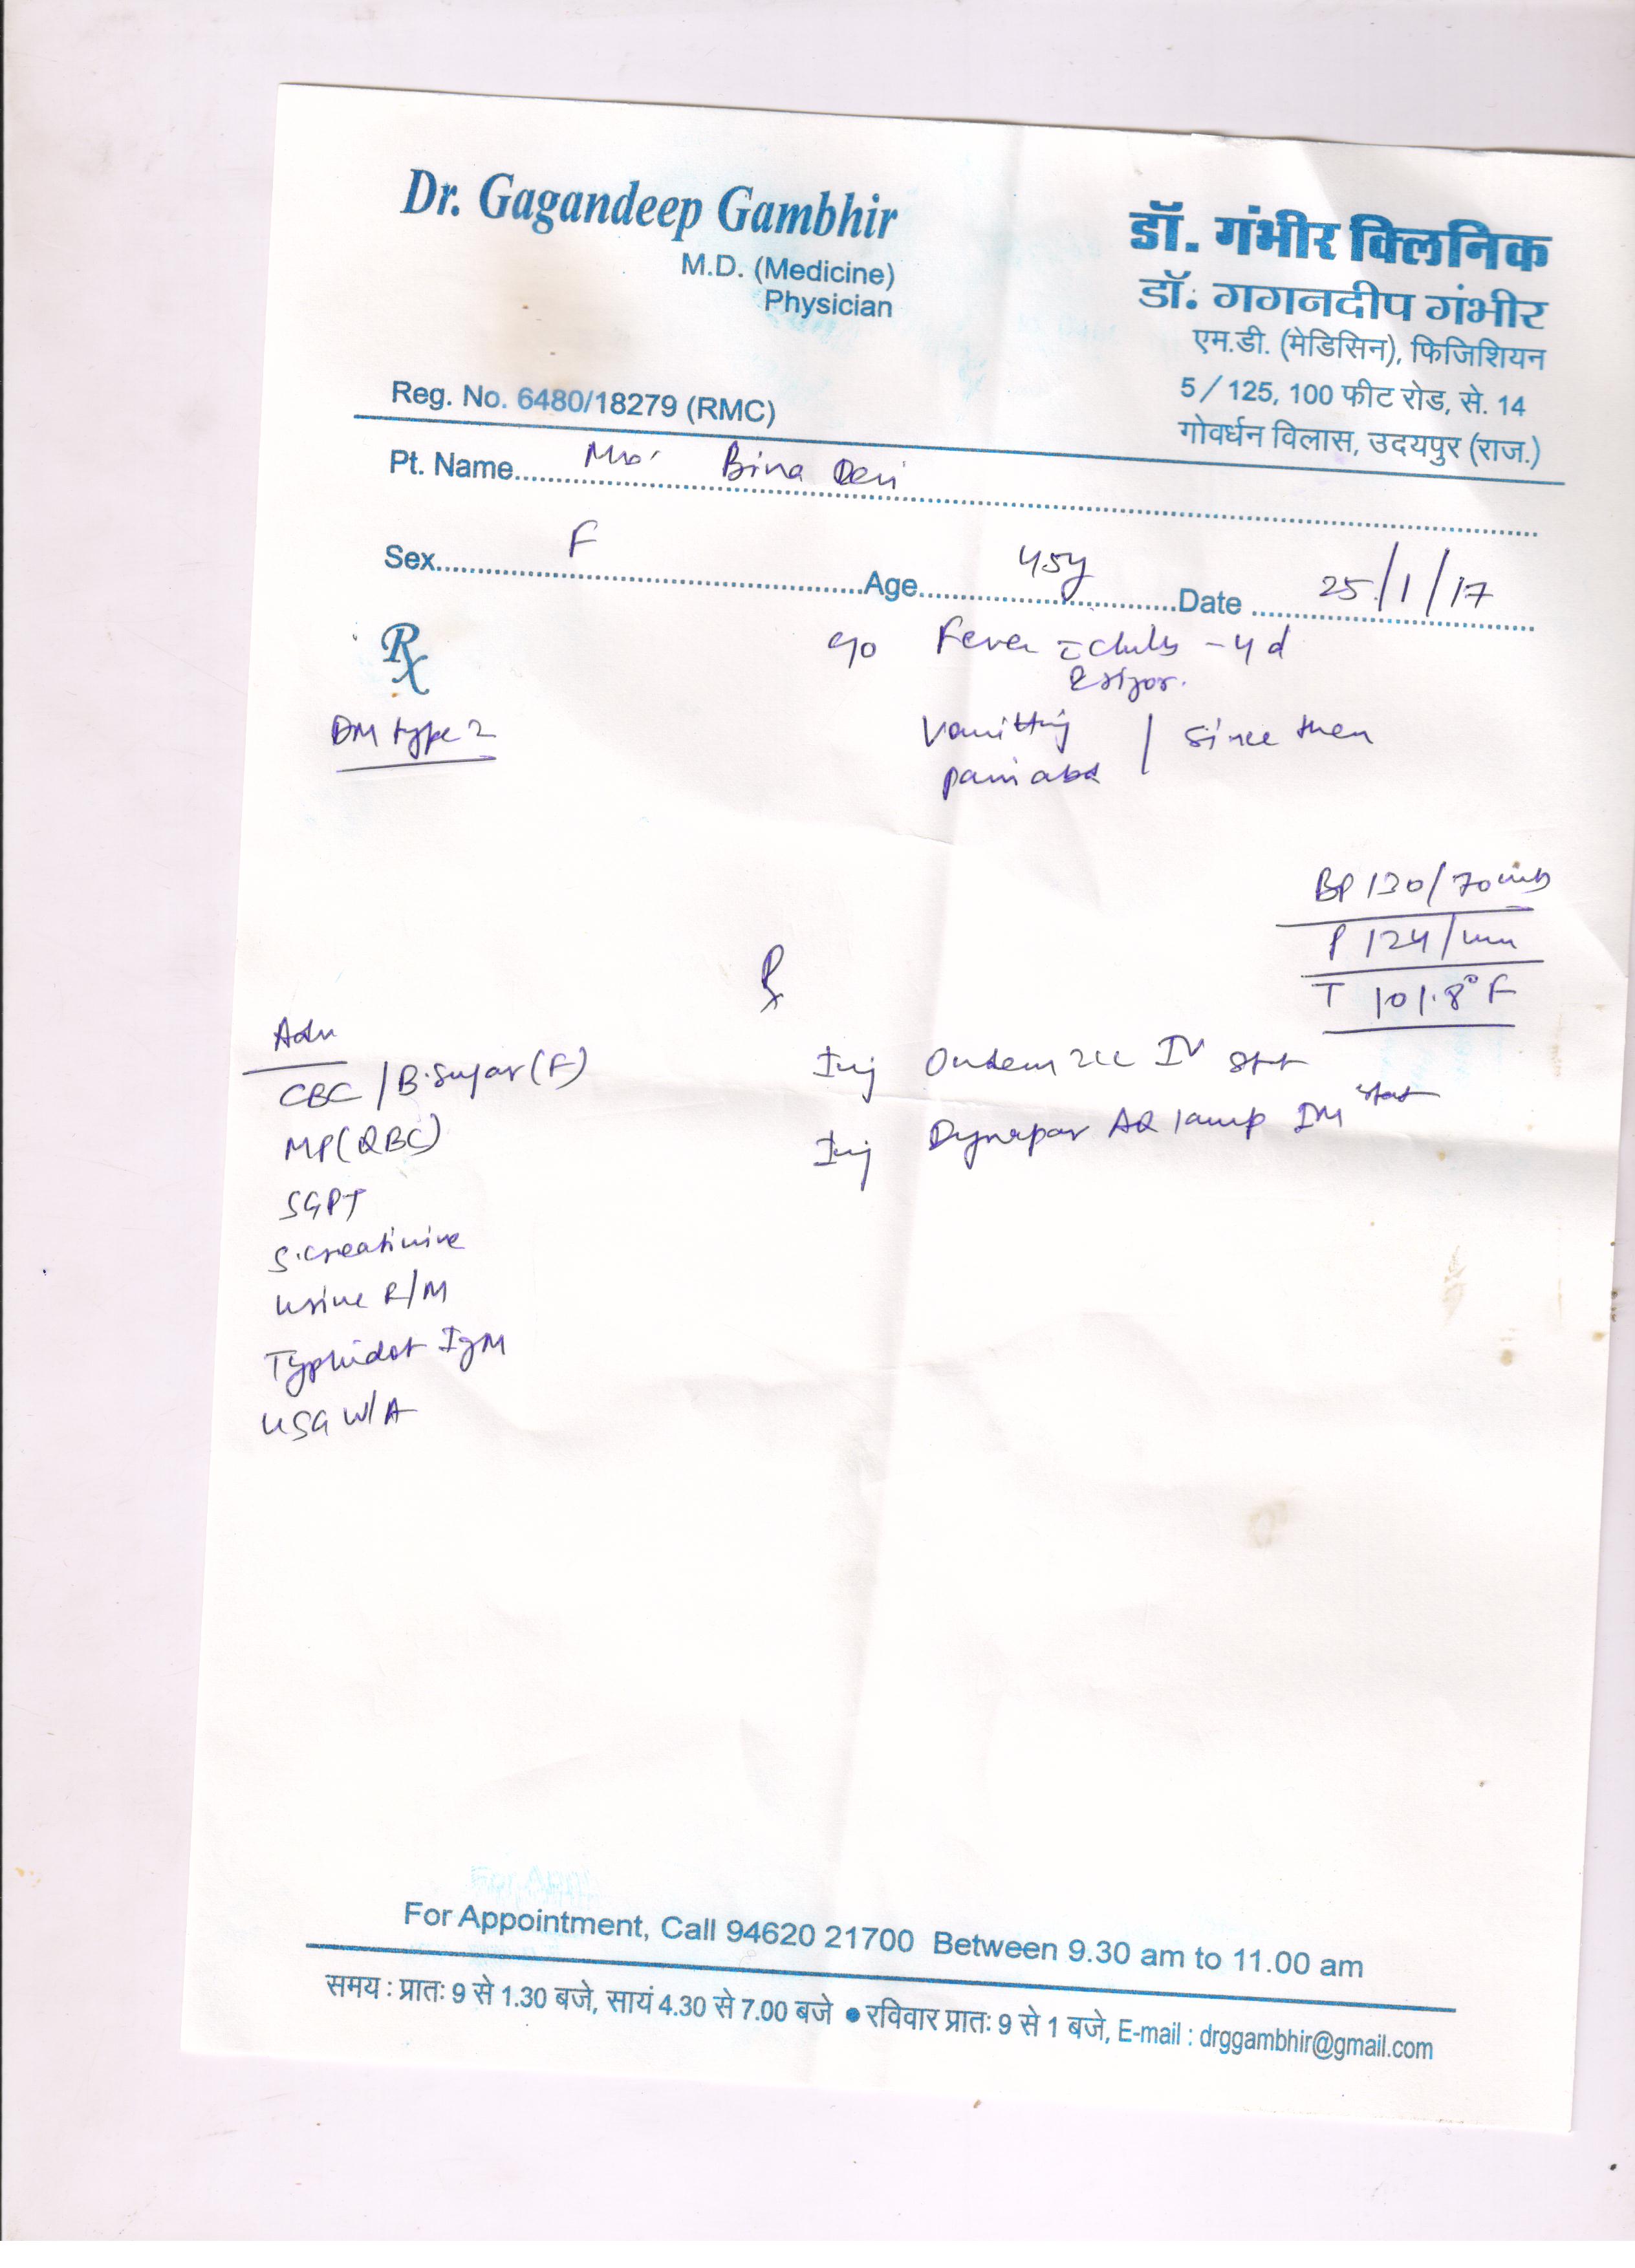 Dr. Gagandeep Gambhir
M.D. (Medicine)
Physician
Reg. No. 6480/18279 (RMC)
डॉ. गंभीर क्लिनिक
डॉ. गगनदीप गंभीर
एम.डी. (मेडिसिन), फिजिशियन
5/125, 100 फीट रोड, से. 14
गोवर्धन विलास, उदयपुर (राज.)
Pt. Name Mrs. Bina Devi
Sex F Age 45y Date 25/1/17
Rx
DM type 2
c/o Fever c̄ chills - 4 d
& rigor.
Vomitting | since then
pain abd
BP 130/70
P 124/min
T 101.8°F
Rx
Adv
CBC / B.Sugar (F)
MP (QBC)
SGPT
S.creatinine
Urine R/M
Typhidot IgM
USG W/A
Inj Ondem 2cc IV stat
Inj Dynapar AQ 1amp IM stat
For Appointment, Call 94620 21700 Between 9.30 am to 11.00 am
समय : प्रातः 9 से 1.30 बजे, सायं 4.30 से 7.00 बजे ● रविवार प्रातः 9 से 1 बजे, E-mail : drggambhir@gmail.com